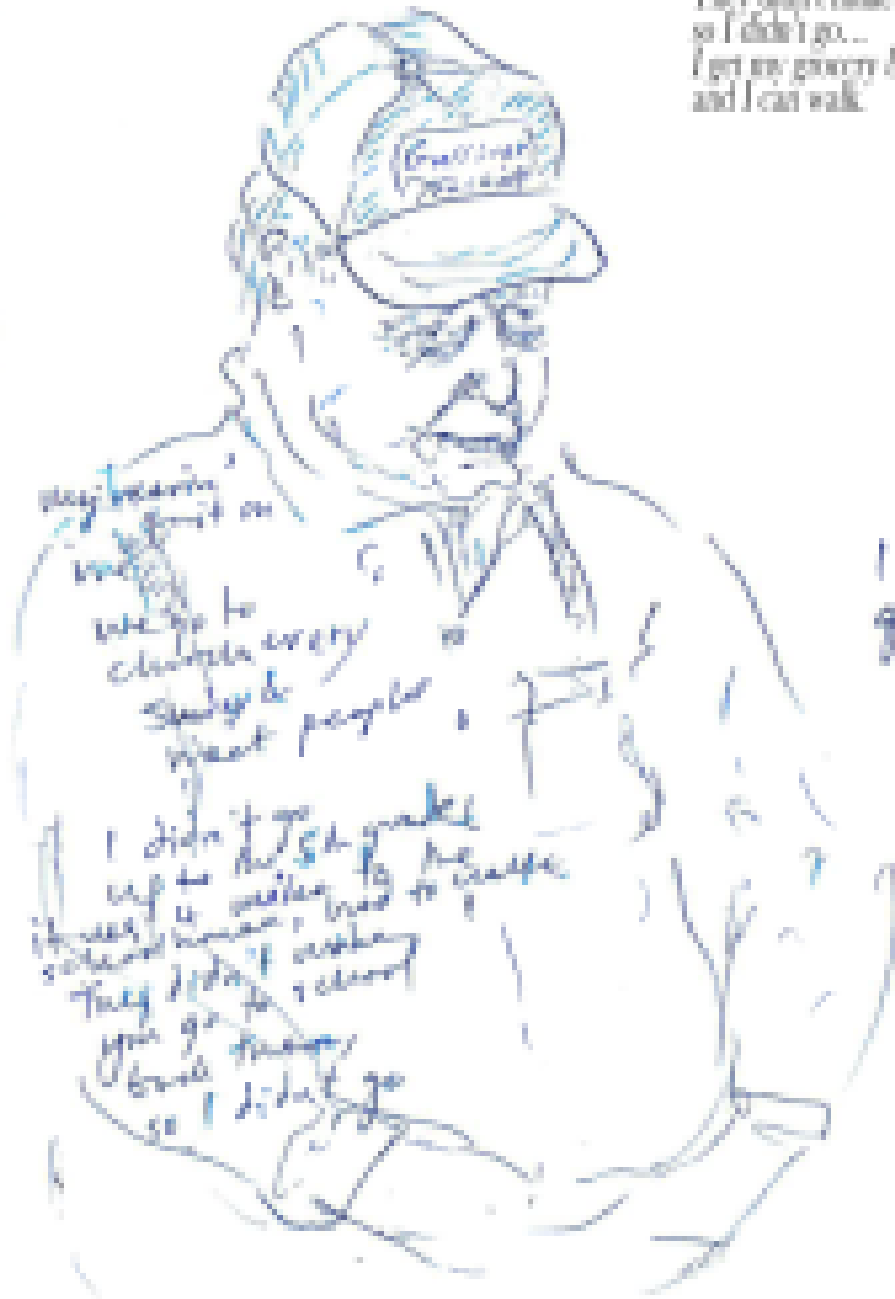 so I didn't go...
I get my grocery
and I can walk.
my hearin'
quit on
me
we go to
church every
Sunday &
meet people
I didn't go
up to the 5th grade
it was 4 miles to the
schoolhouse, had to walk
They didn't make
you go to school
back then
so I didn't go